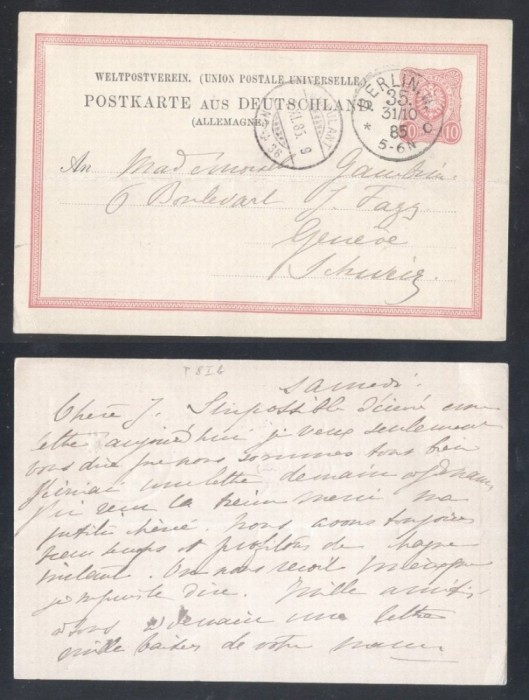 WELTPOSTVEREIN. (UNION POSTALE UNIVERSELLE.)
POSTKARTE AUS DEUTSCHLAND
(ALLEMAGNE)
BERLIN.W.
35.
31/10
85
5-6N
10
An Mademoiselle
6 Boulevart J. Fazy
Genève
Schweiz
samedi.
Chère J. Impossible d'écrire une
lettre aujourd'hui je veux seulement
vous dire que nous sommes tous bien
une lettre demain
j'ai reçu la merci ma
petite chérie. Nous avons toujours
beau temps et profitons de chaque
instant. On nous reçoit
je ne puis te dire. Mille
à demain une lettre
mille baisers de votre